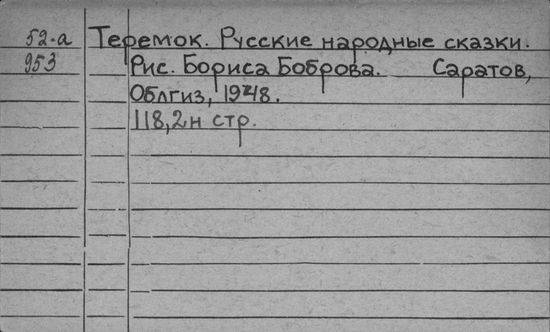 52-а Теремок. Русские народные сказки.
953 Рис. Бориса Боброва. Саратов,
Облгиз, 1948.
118,2н стр.